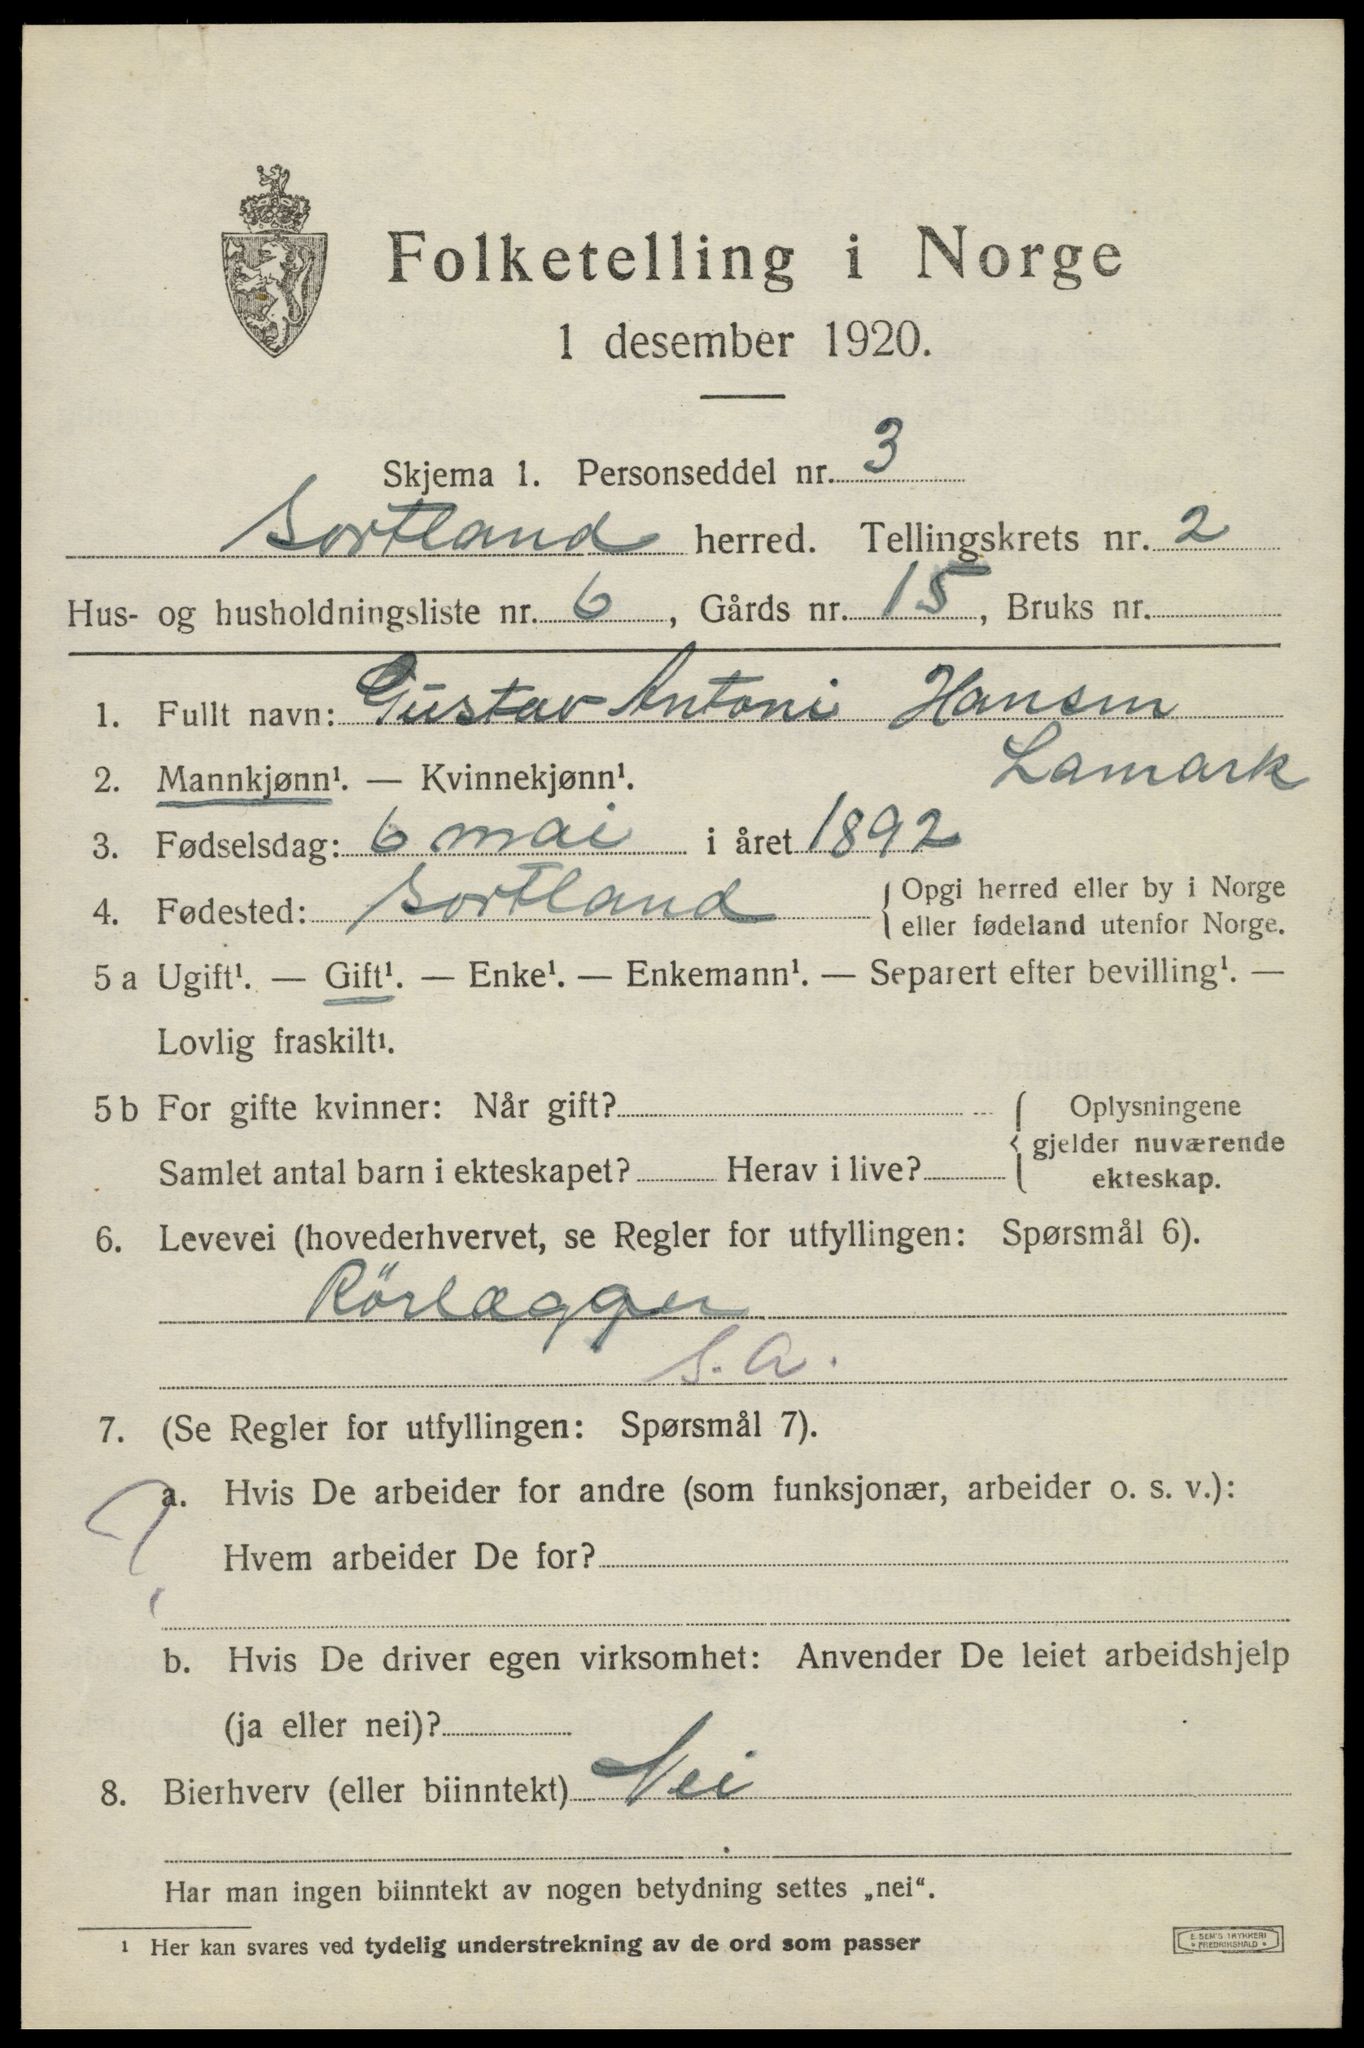 Folketelling i Norge
1 desember 1920.
Skjema 1. Personseddel nr. 3
Sortland herred. Tellingskrets nr. 2
Hus- og husholdningsliste nr. 6, Gårds nr. 15, Bruks nr.
1. Fullt navn: Gustav Antoni Hansen
Lamark
2. Mannkjønn¹. — Kvinnekjønn¹.
3. Fødselsdag: 6 mai i året 1892
4. Fødested: Sortland { Opgi herred eller by i Norge
eller fødeland utenfor Norge.
5 a Ugift¹. — Gift¹. — Enke¹. — Enkemann¹. — Separert efter bevilling¹. —
Lovlig fraskilt¹.
5 b For gifte kvinner: Når gift? { Oplysningene
gjelder nuværende
Samlet antal barn i ekteskapet? Herav i live? ekteskap.
6. Levevei (hovederhvervet, se Regler for utfyllingen: Spørsmål 6).
Rörlægger
S. A.
7. (Se Regler for utfyllingen: Spørsmål 7).
? a. Hvis De arbeider for andre (som funksjonær, arbeider o. s. v.):
Hvem arbeider De for?
b. Hvis De driver egen virksomhet: Anvender De leiet arbeidshjelp
(ja eller nei)?
8. Bierhverv (eller biinntekt) Nei
Har man ingen biinntekt av nogen betydning settes „nei“.
¹ Her kan svares ved tydelig understrekning av de ord som passer
E. SEM'S TRYKKERI
• FREDRIKSHALD •